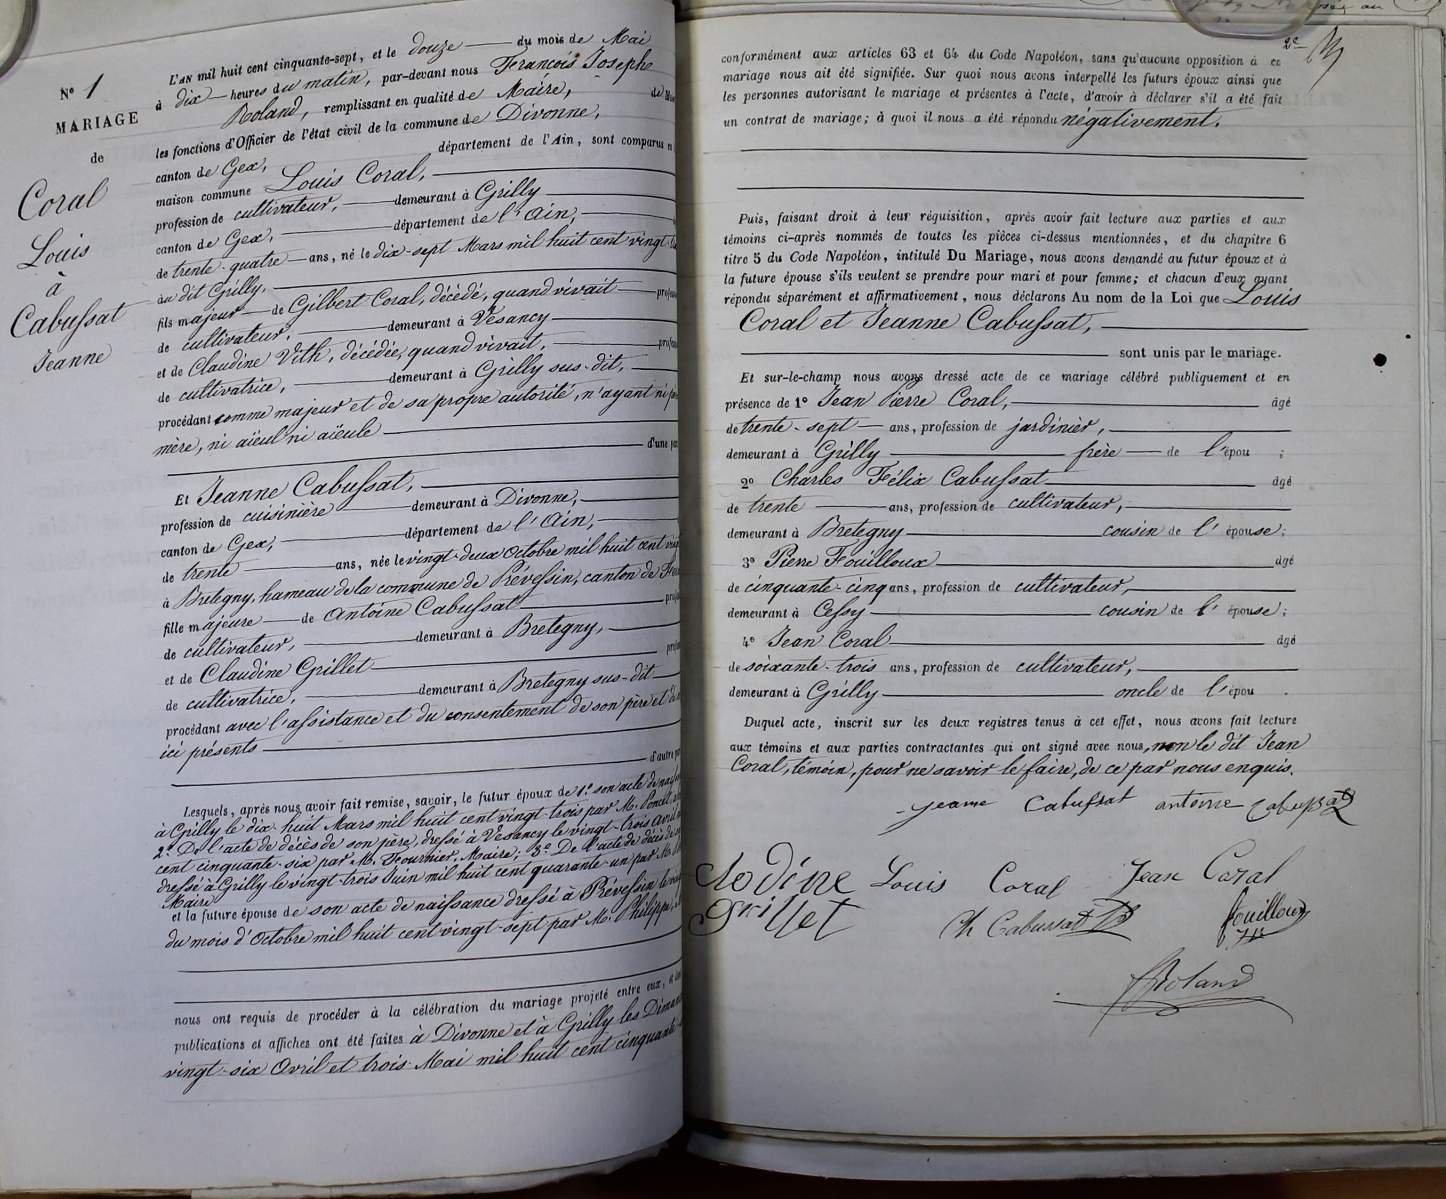 N° 1
MARIAGE
de
Coral
Louis
à
Cabussat
Jeanne
L'AN mil huit cent cinquante-sept, et le douze du mois de Mai
à dix heures du matin, par-devant nous François Joseph
Roland, remplissant en qualité de Maire, de
les fonctions d'Officier de l'état civil de la commune de Divonne,
canton de Gex, département de l'Ain, sont comparus en
maison commune Louis Coral,
profession de cultivateur, demeurant à Grilly
canton de Gex, département de l'Ain,
de trente-quatre ans, né le dix-sept Mars mil huit cent vingt
au dit Grilly,
fils majeur de Gilbert Coral, décédé, quand vivait
de cultivateur, demeurant à Vesancy
et de Claudine Vith, décédée, quand vivait,
de cultivatrice, demeurant à Grilly sus-dit,
procédant comme majeur et de sa propre autorité, n'ayant ni
mère, ni aïeul ni aïeule
d'une
Et Jeanne Cabussat,
profession de cuisinière demeurant à Divonne,
canton de Gex, département de l'Ain,
de trente ans, née le vingt-deux Octobre mil huit cent
à Bretegny, hameau de la commune de Prévessin, canton de
fille majeure de Antoine Cabussat
de cultivateur, demeurant à Bretegny,
et de Claudine Grillet
de cultivatrice, demeurant à Bretegny sus-dit
procédant avec l'assistance et du consentement de son père et de
ici présents
d'autre
Lesquels, après nous avoir fait remise, savoir, le futur époux de 1° son acte de
à Grilly le dix-huit Mars mil huit cent vingt-trois par M. Poncet
2° De l'acte de décès de son père, dressé à Vesancy le vingt-trois Avril
cent cinquante-six par M. Fournier, Maire; 3° De l'acte de décès de
dressé à Grilly le vingt-trois Juin mil huit cent quarante-un par M.
Maire
et la future épouse de son acte de naissance dressé à Prévessin le
du mois d'Octobre mil huit cent vingt-sept par M. Philippe,
nous ont requis de procéder à la célébration du mariage projeté entre eux,
publications et affiches ont été faites à Divonne et à Grilly les
vingt-six Avril et trois Mai mil huit cent cinquante
2e
conformément aux articles 63 et 64 du Code Napoléon, sans qu'aucune opposition à ce
mariage nous ait été signifiée. Sur quoi nous avons interpellé les futurs époux ainsi que
les personnes autorisant le mariage et présentes à l'acte, d'avoir à déclarer s'il a été fait
un contrat de mariage; à quoi il nous a été répondu négativement.
Puis, faisant droit à leur réquisition, après avoir fait lecture aux parties et aux
témoins ci-après nommés de toutes les pièces ci-dessus mentionnées, et du chapitre 6
titre 5 du Code Napoléon, intitulé Du Mariage, nous avons demandé au futur époux et à
la future épouse s'ils veulent se prendre pour mari et pour femme; et chacun d'eux ayant
répondu séparément et affirmativement, nous déclarons Au nom de la Loi que Louis
Coral et Jeanne Cabussat,
sont unis par le mariage.
Et sur-le-champ nous avons dressé acte de ce mariage célébré publiquement et en
présence de 1° Jean Pierre Coral, âgé
de trente-sept ans, profession de jardinier,
demeurant à Grilly frère de l'épou ;
2° Charles Félix Cabussat âgé
de trente ans, profession de cultivateur,
demeurant à Bretegny cousin de l'épouse;
3° Pierre Fouilloux âgé
de cinquante-cinq ans, profession de cultivateur,
demeurant à Cessy cousin de l'épouse;
4° Jean Coral âgé
de soixante-trois ans, profession de cultivateur,
demeurant à Grilly oncle de l'épou .
Duquel acte, inscrit sur les deux registres tenus à cet effet, nous avons fait lecture
aux témoins et aux parties contractantes qui ont signé avec nous, non le dit Jean
Coral, témoin, pour ne savoir le faire, de ce par nous enquis.
jeanne Cabussat antoine Cabussat
clodine Louis Coral Jean Coral
Grillet Ch Cabussat fouilloux
Roland